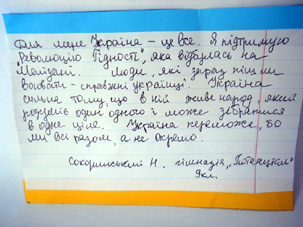 Для мене Україна – це все. Я підтримую
Революцію Гідності, яка відбулась на
"Майдані". Люди, які зараз пішли
воювати – справжні українці. Україна
сильна тому, що в ній живе народ який
розуміє один одного і може зібратися
в одне ціле. Україна переможе, бо
ми всі разом, а не окремо.
Сокоринський Н. гімназія „Потенціал"
9кл.